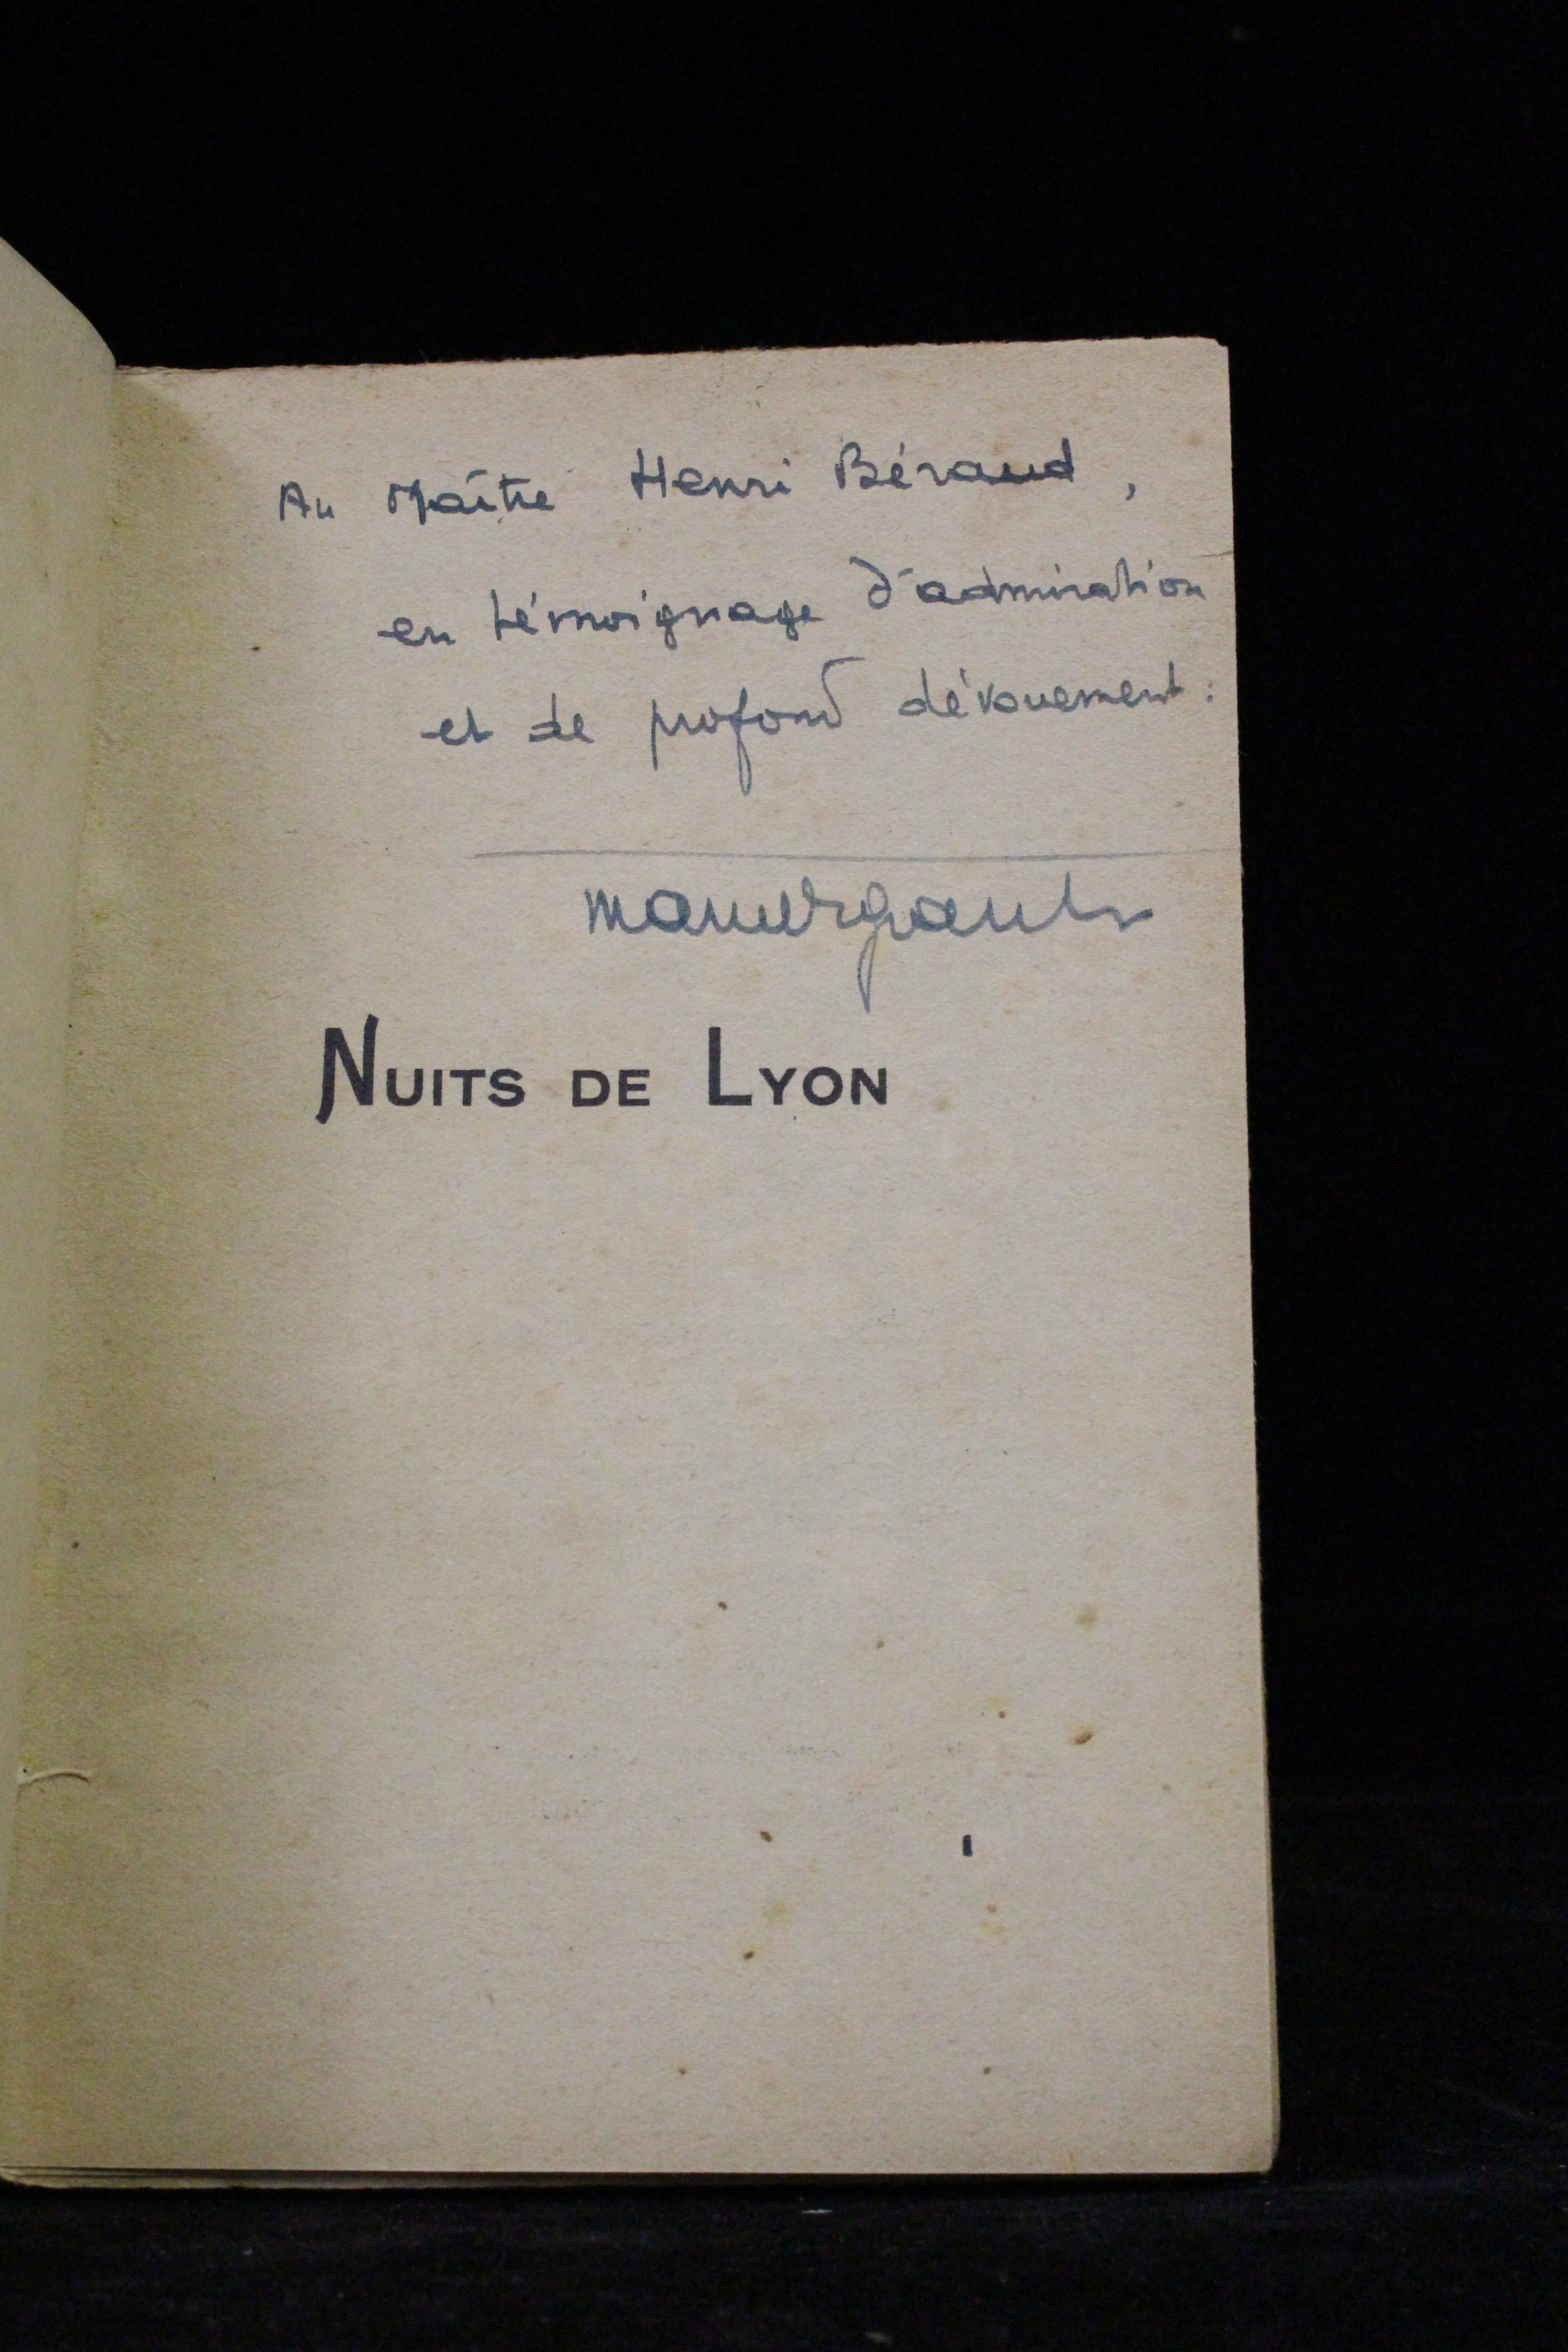 Au Maître Henri Béraud,
en témoignage d'admiration
et de profond dévouement.
NUITS DE LYON